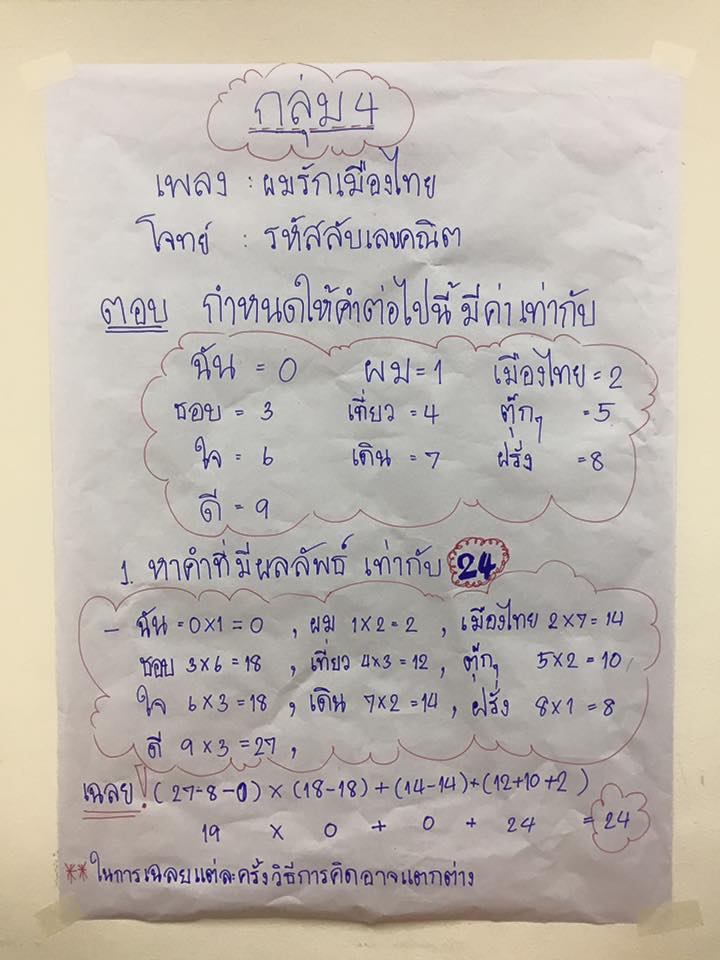 กลุ่ม 4
เพลง : ผมรักเมืองไทย
โจทย์ : รหัสลับเลขคณิต
ตอบ กำหนดให้คำต่อไปนี้ มีค่าเท่ากับ
ฉัน = 0 ผม = 1 เมืองไทย = 2
ชอบ = 3 เที่ยว = 4 ตุ๊กๆ = 5
ใจ = 6 เดิน = 7 ฝรั่ง = 8
ดี = 9
1. หาคำที่มีผลลัพธ์ เท่ากับ 24
- ฉัน = 0×1 = 0 , ผม 1×2 = 2 , เมืองไทย 2×7 = 14
ชอบ 3×6 = 18 , เที่ยว 4×3 = 12 , ตุ๊กๆ 5×2 = 10 ,
ใจ 6×3 = 18 , เดิน 7×2 = 14 , ฝรั่ง 8×1 = 8
ดี 9×3 = 27 ,
เฉลย! (27-8-0) × (18-18) + (14-14) + (12+10+2)
19 × 0 + 0 + 24 = 24
** ในการเฉลยแต่ละครั้งวิธีการคิดอาจแตกต่าง